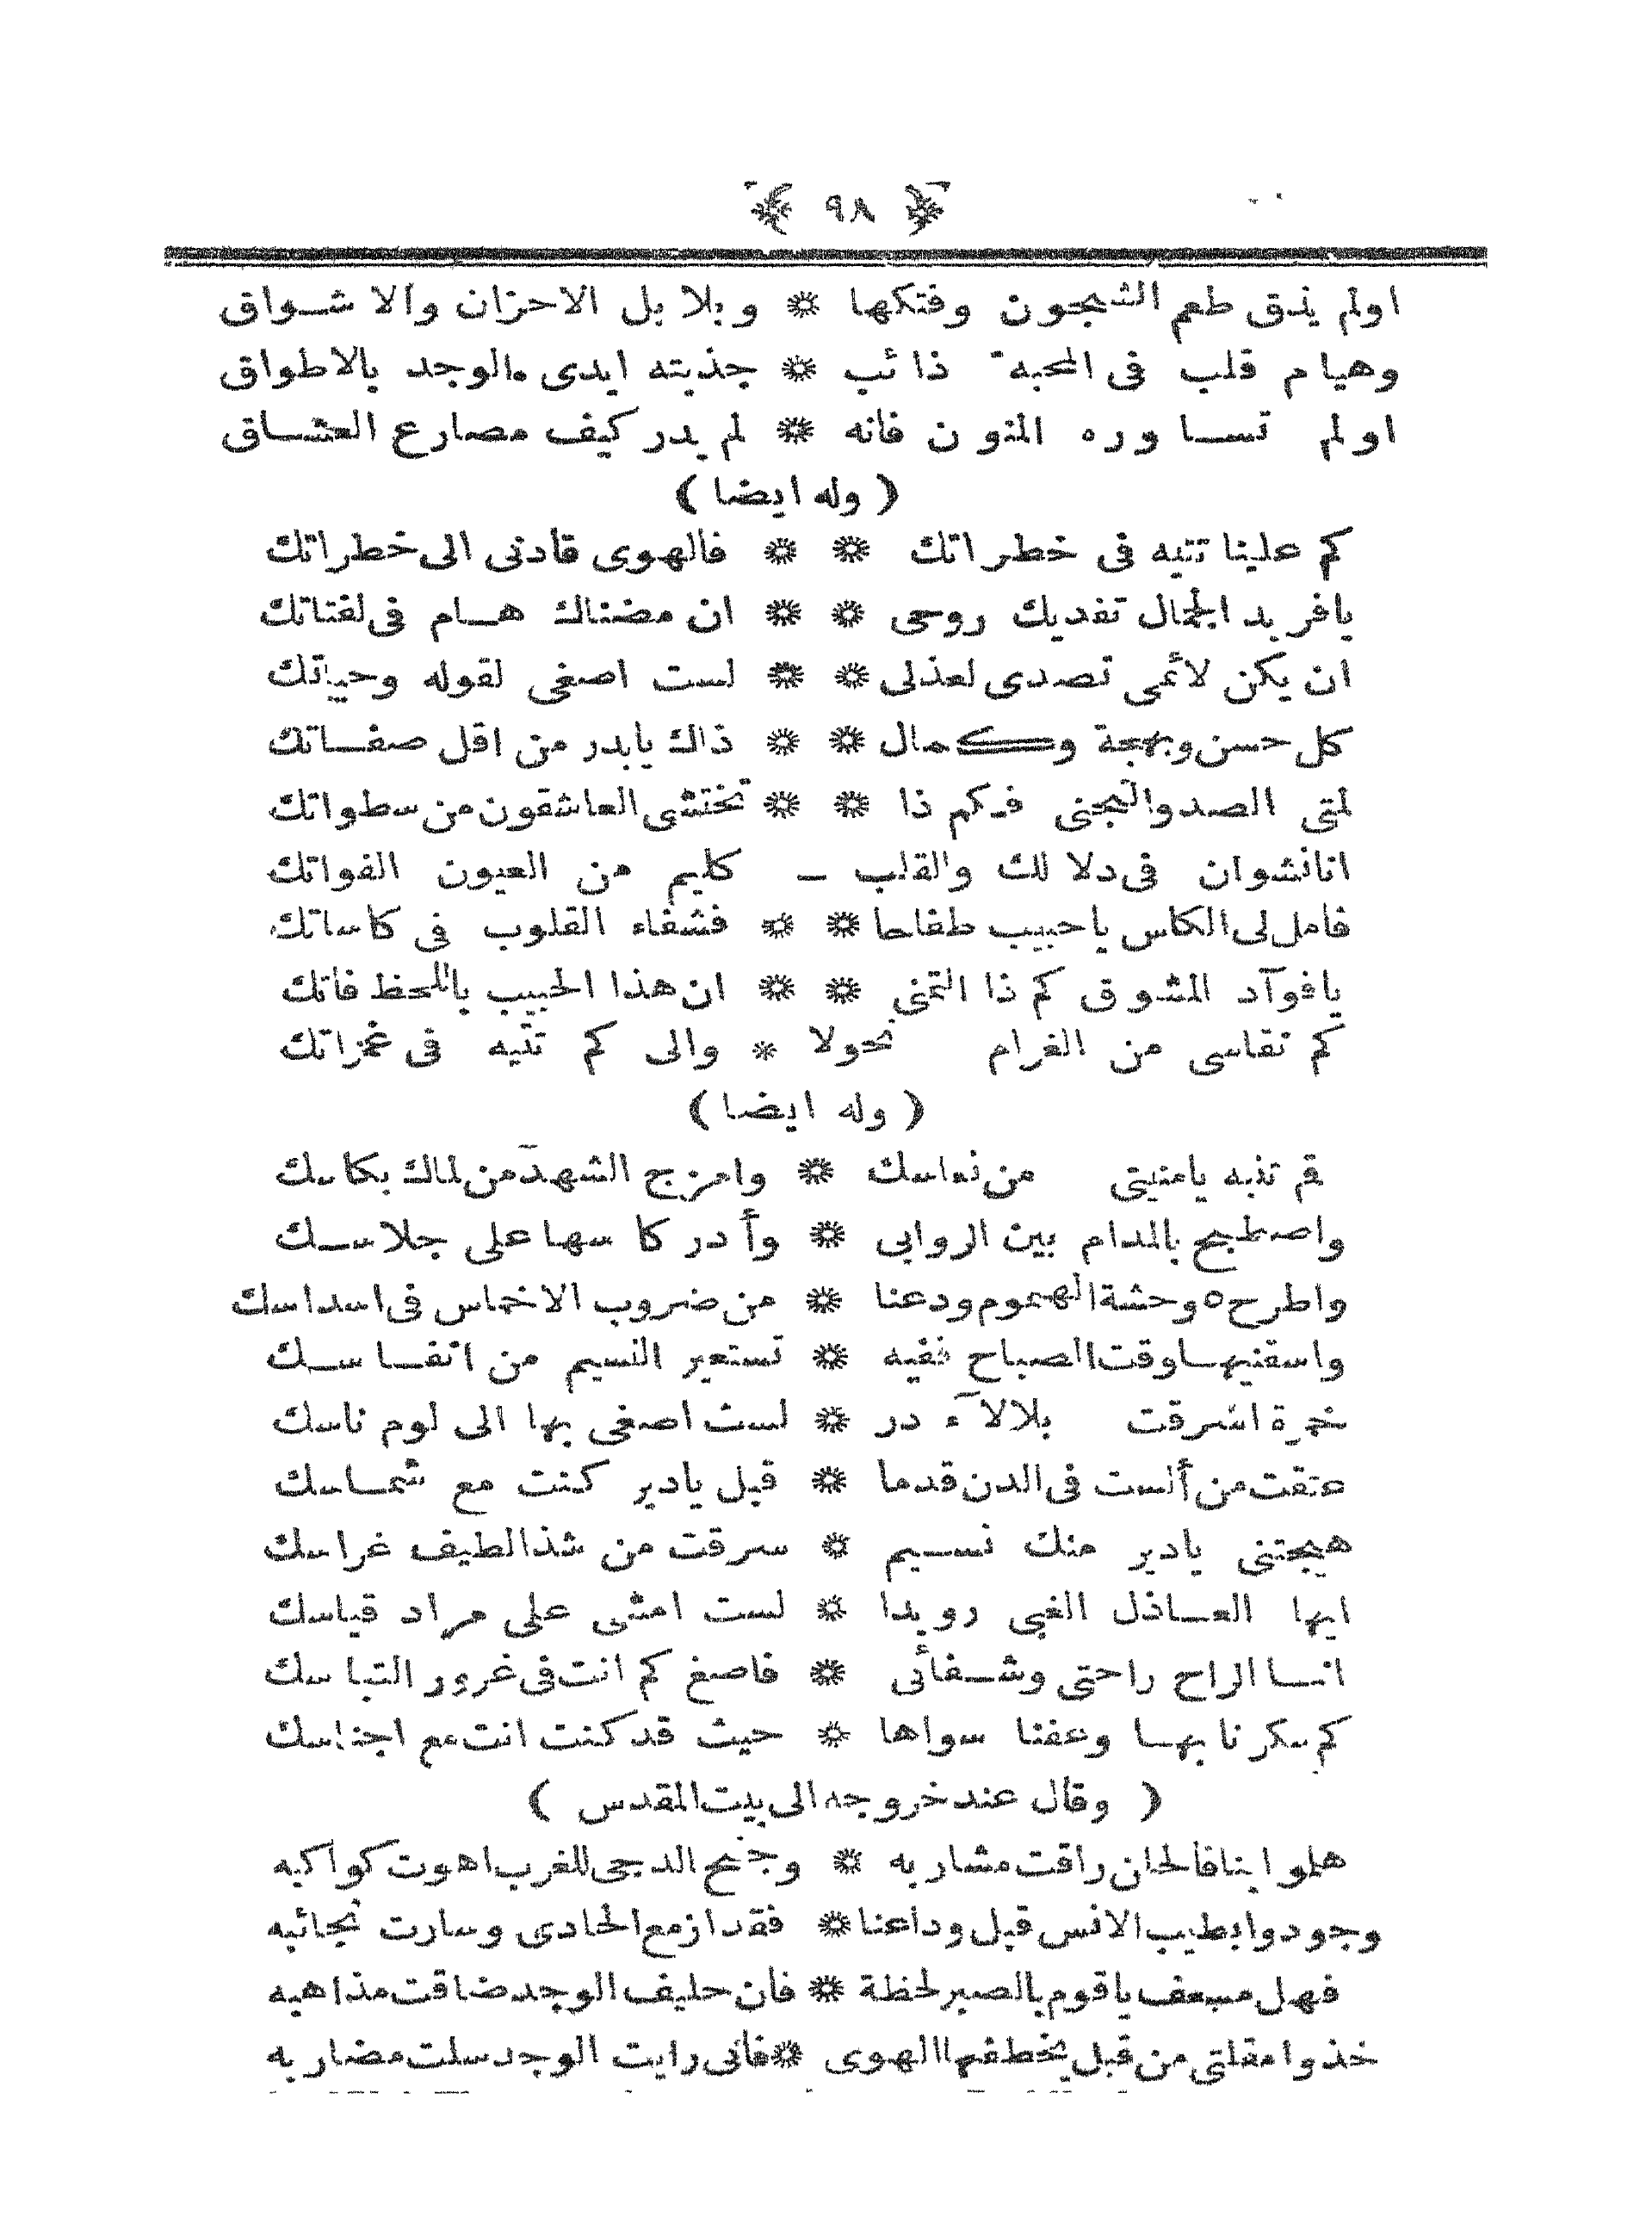 ﴿ ٩٨ ﴾
اولم يذق طعم الشجون وفتكها ❋ وبلابل الاحزان والاشواق
وهيام قلب فى المحبة ذائب ❋ جذبته ايدى الوجد بالاطواق
اولم تساوره المنون فانه ❋ لم يدر كيف مصارع العشاق
( وله ايضا )
كم علينا تتيه فى خطراتك ❋ ❋ فالهوى قادنى الى خطراتك
يافريد الجمال تفديك روحى ❋ ❋ ان مضناك هام فى لفتاتك
ان يكن لائمى تصدى لعذلى ❋ ❋ لست اصغى لقوله وحياتك
كل حسن وبهجة وكمال ❋ ❋ ذاك يابدر من اقل صفاتك
لمتى الصد والتجنى فكم ذا ❋ ❋ تختشى العاشقون من سطواتك
انا نشوان فى دلالك والقلب ـ كليم من العيون الفواتك
فامل لى الكاس ياحبيب طفاحا ❋ ❋ فشفاء القلوب فى كاساتك
يافوآد المشوق كم ذا التمنى ❋ ❋ ان هذا الحبيب باللحظ فاتك
كم تقاسى من الغرام نحولا * والى كم تتيه فى غمزاتك
( وله ايضا )
قم تنبه يامنيتى من نعاسك ❋ وامزج الشهد من لماك بكاسك
واصطبح بالمدام بين الروابى ❋ وأدر كاسها على جلاسك
واطرح ٥ وحشة الهموم ودعنا ❋ من ضروب الاخماس فى اسداسك
واسقنيها وقت الصباح ففيه ❋ تستعير النسيم من انفاسك
خمرة اشرقت بلالآء در ❋ لست اصغى بها الى لوم ناسك
عتقت من ألست فى الدن قدما ❋ قبل يادير كنت مع شماسك
هيجتنى يادير منك نسيم ❋ سرقت من شذا لطيف غراسك
ايها العاذل الغبى رويدا ❋ لست امشى على مراد قياسك
انما الراح راحتى وشفائى ❋ فاصغ كم انت فى غرور التباسك
كم سكرنا بها وعفنا سواها ❋ حيث قد كنت انت مع اجناسك
( وقال عند خروجه الى بيت المقدس )
هلموا بنا فالحان راقت مشاربه ❋ وجنح الدجى للغرب اهوت كواكبه
وجودوا بطيب الانس قبل وداعنا ❋ فقد ازمع الحادى وسارت نجائبه
فهل مسعف ياقوم بالصبر لحظة ❋ فان حليف الوجد ضاقت مذاهبه
خذوا مقلتى من قبل يخطفها الهوى ❋ فانى رايت الوجد سلت مضاربه